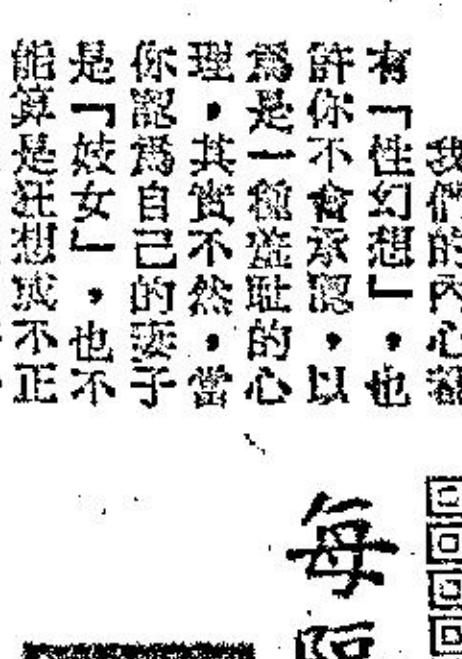 我們的內心都
有「性幻想」，也
許你不會承認，以
爲是一種羞恥的心
理，其實不然，當
你認爲自己的妻子
是「妓女」，也不
能算是狂想或不正
每